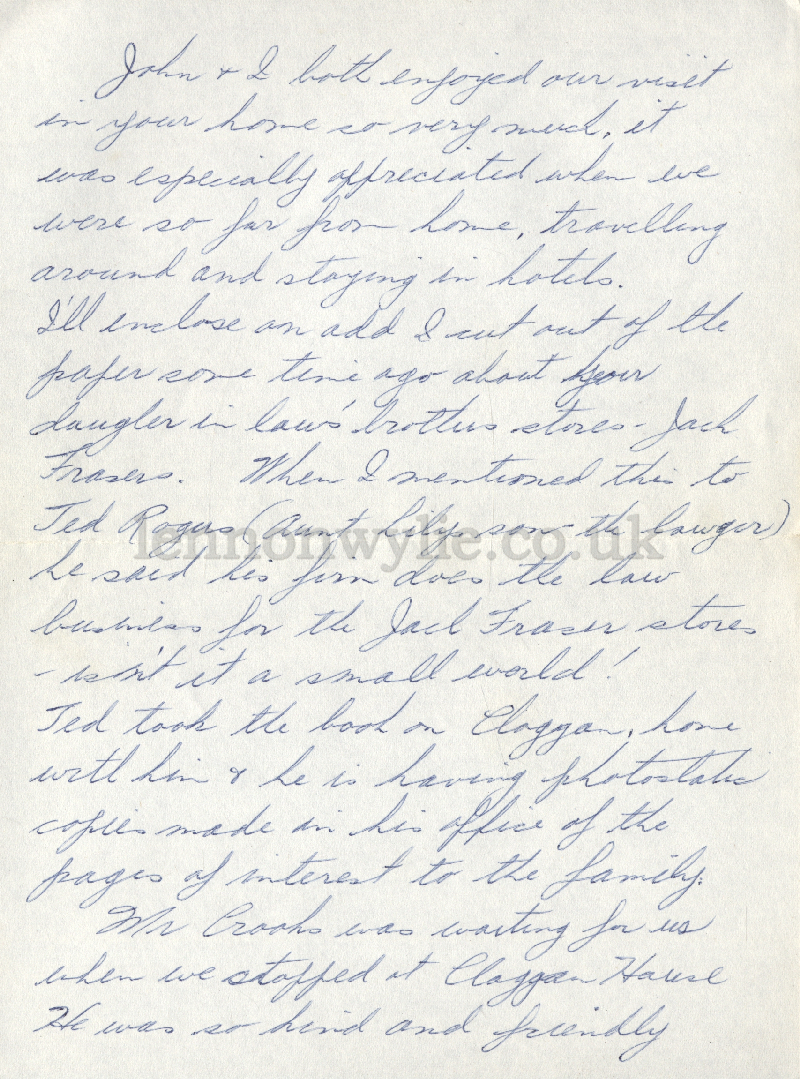 John & I both enjoyed our visit
in your home so very much, it
was especially appreciated when we
were so far from home, travelling
around and staying in hotels.
I'll enclose an add I cut out of the
paper some time ago about your
daugler in laws' brothers stores - Jack
Frasers. When I mentioned this to
Ted Rogers (Aunt Lily's son - the lawyer)
lennonwylie.co.uk
he said his firm does the law
business for the Jack Fraser stores
- isn't it a small world!
Ted took the book on Cloggan, home
with him & he is having photostatic
copies made in his office of the
pages of interest to the family.
Mr Crooks was waiting for us
when we stopped at Claggan House
He was so kind and friendly